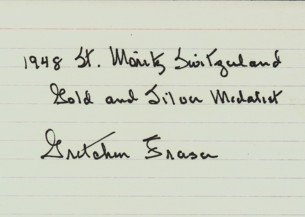 1948 St. Moritz Switzerland
Gold and Silver Medalist
Gretchen Fraser